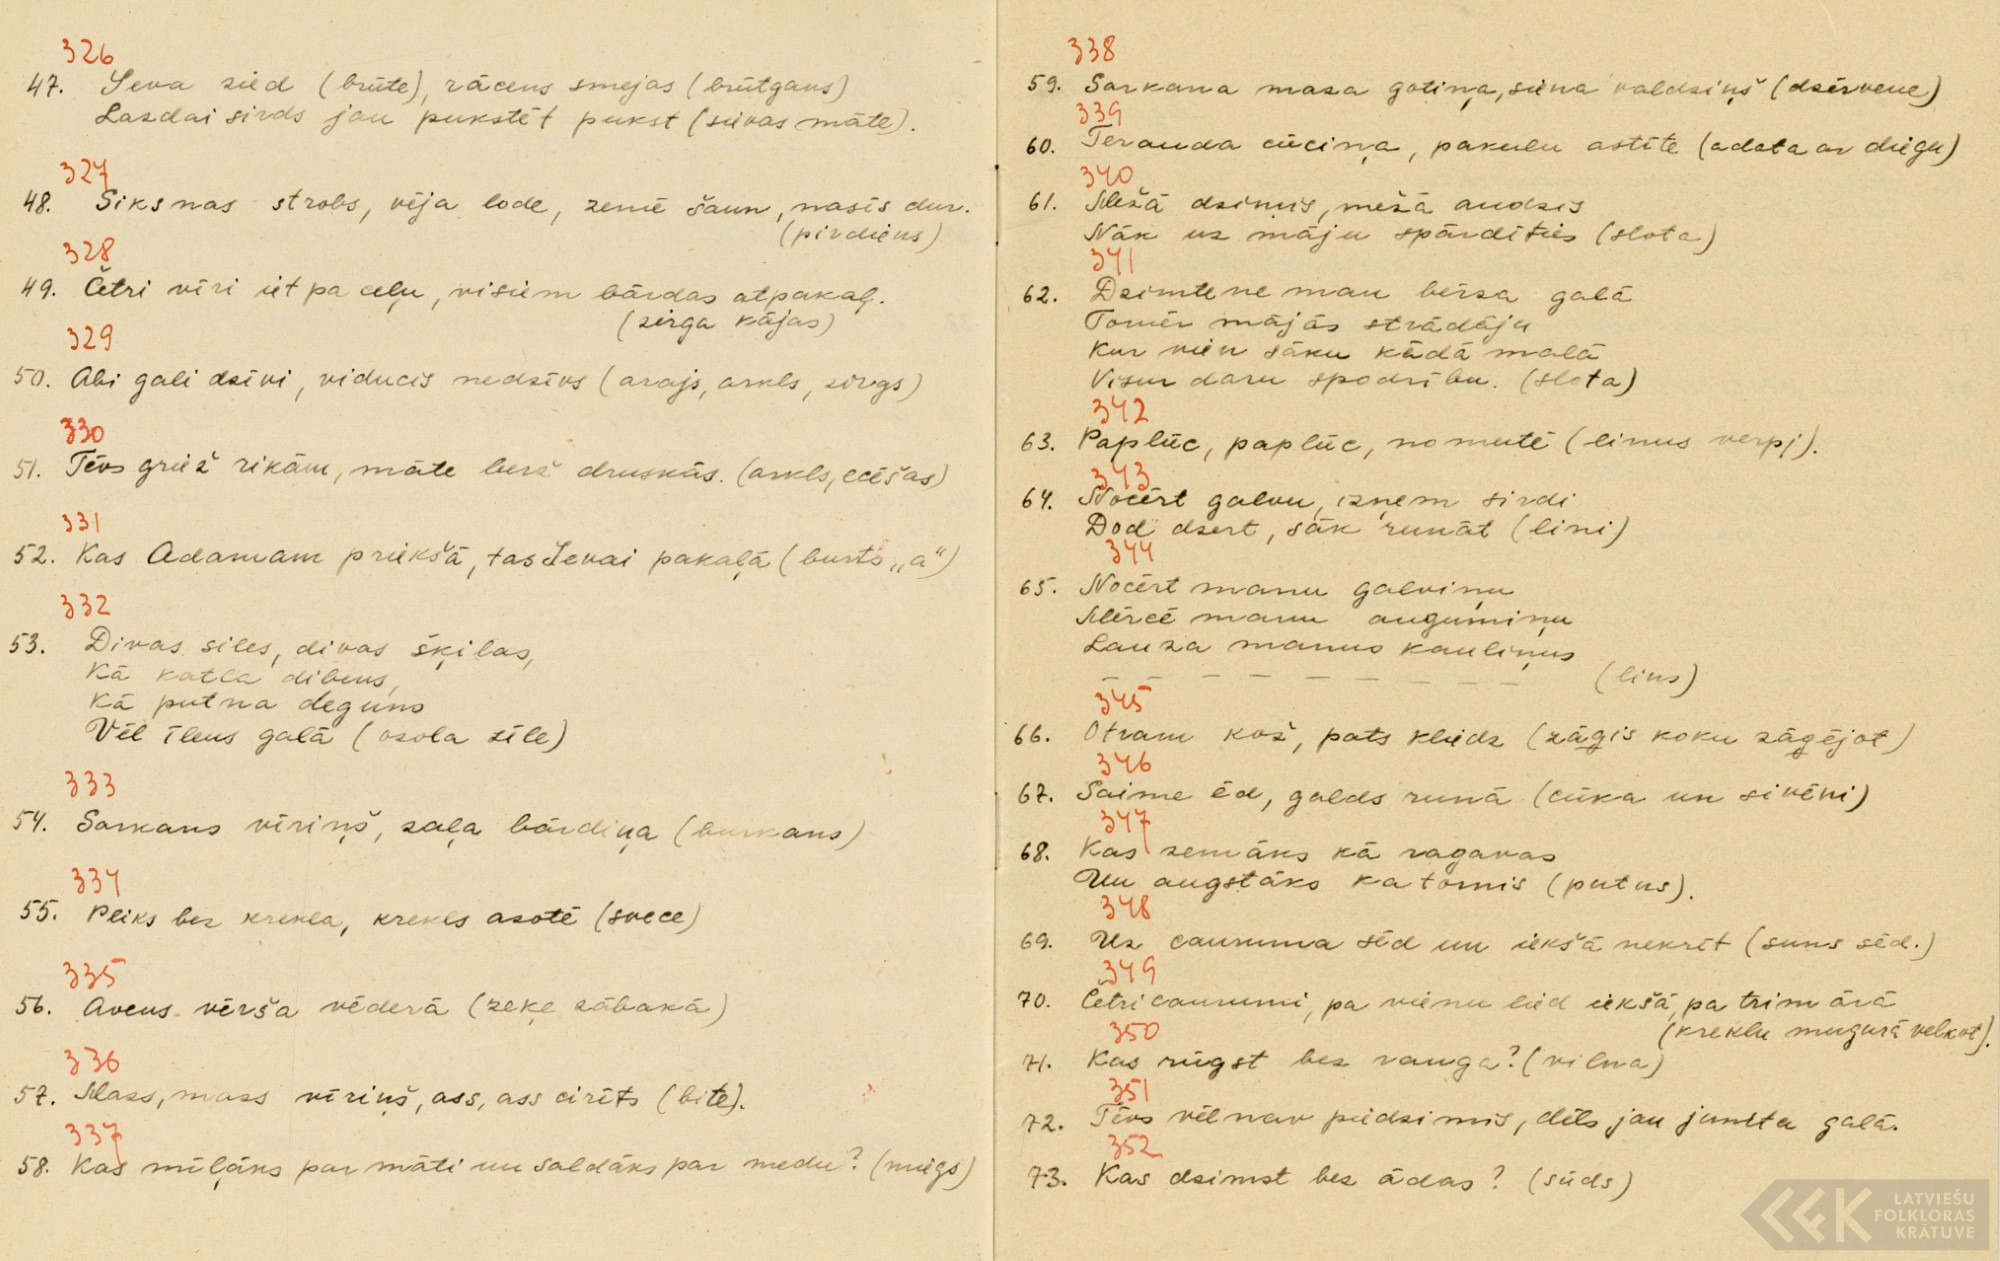 326
47. Ieva zied (brūte), rācens smejas (brūtgans)
Lazdai sirds jau pukstēt pukst (sievas māte).
327
48. Siksnas strobs, vēja lode, zemē šaun, nasīs dur.
(pirdiens)
328
49. Četri vīri iet pa ceļu, visiem bārdas atpakaļ.
(zirga kājas)
329
50. Abi gali dzīvi, viducis nedzīvs (arajs, arkls, zirgs)
330
51. Tēvs griež rikām, māte berž druskās. (arkls, ecēšas)
331
52. Kas Adamam priekšā, tas Ievai pakaļā (burts „a“)
332
53. Divas siles, divas šķilas,
Kā katla dibens,
Kā putna deguns
Vēl īlens galā (ozola zīle)
333
54. Sarkans vīriņš, zaļa bārdiņa (burkans)
334
55. Pliks bez krekla, krekls azotē (svece)
335
56. Avens vērša vēderā (zeķe zābakā)
336
57. Mazs, mazs vīriņš, ass, ass cirīts (bite).
337
58. Kas mīļāks par māti un saldāks par medu? (miegs)
338
59. Sarkana maza gotiņa, siena valdziņš (dzērvene)
339
60. Tērauda cūciņa, pakulu astīte (adata ar diegu)
340
61. Mežā dzimis, mežā audzis
Nāk uz māju spārdīties (slota)
341
62. Dzimtene man bērza galā
Tomēr mājās strādāju
Kur vien sāku kādā malā
Visur daru spodrību. (slota)
342
63. Paplūc, paplūc, no mutē (linus vērpj).
343
64. Nocērt galvu, izņem sirdi
Dod dzert, sāk runāt (lini)
344
65. Nocērt manu galviņu
Mērcē manu augumiņu
Lauza manus kauliņus
– – – – – – – – – – (lins)
345
66. Otram kož, pats kliedz (zāģis koku zāģējot)
346
67. Saime ēd, galds runā (cūka un sivēni)
347
68. Kas zemāks kā ragavas
Un augstāks ka tornis (putns).
348
69. Uz cauruma sēd un iekšā nekrīt (suns sēd.)
349
70. Četri caurumi, pa vienu lied iekšā, pa trim ārā
(kreklu mugurā velkot).
350
71. Kas rūgst bez rauga? (vilna)
351
72. Tēvs vēl nav piedzimis, dēls jau jumta galā.
352
73. Kas dzimst bez ādas? (sūds)
LATVIEŠU
FOLKLORAS
KRĀTUVE